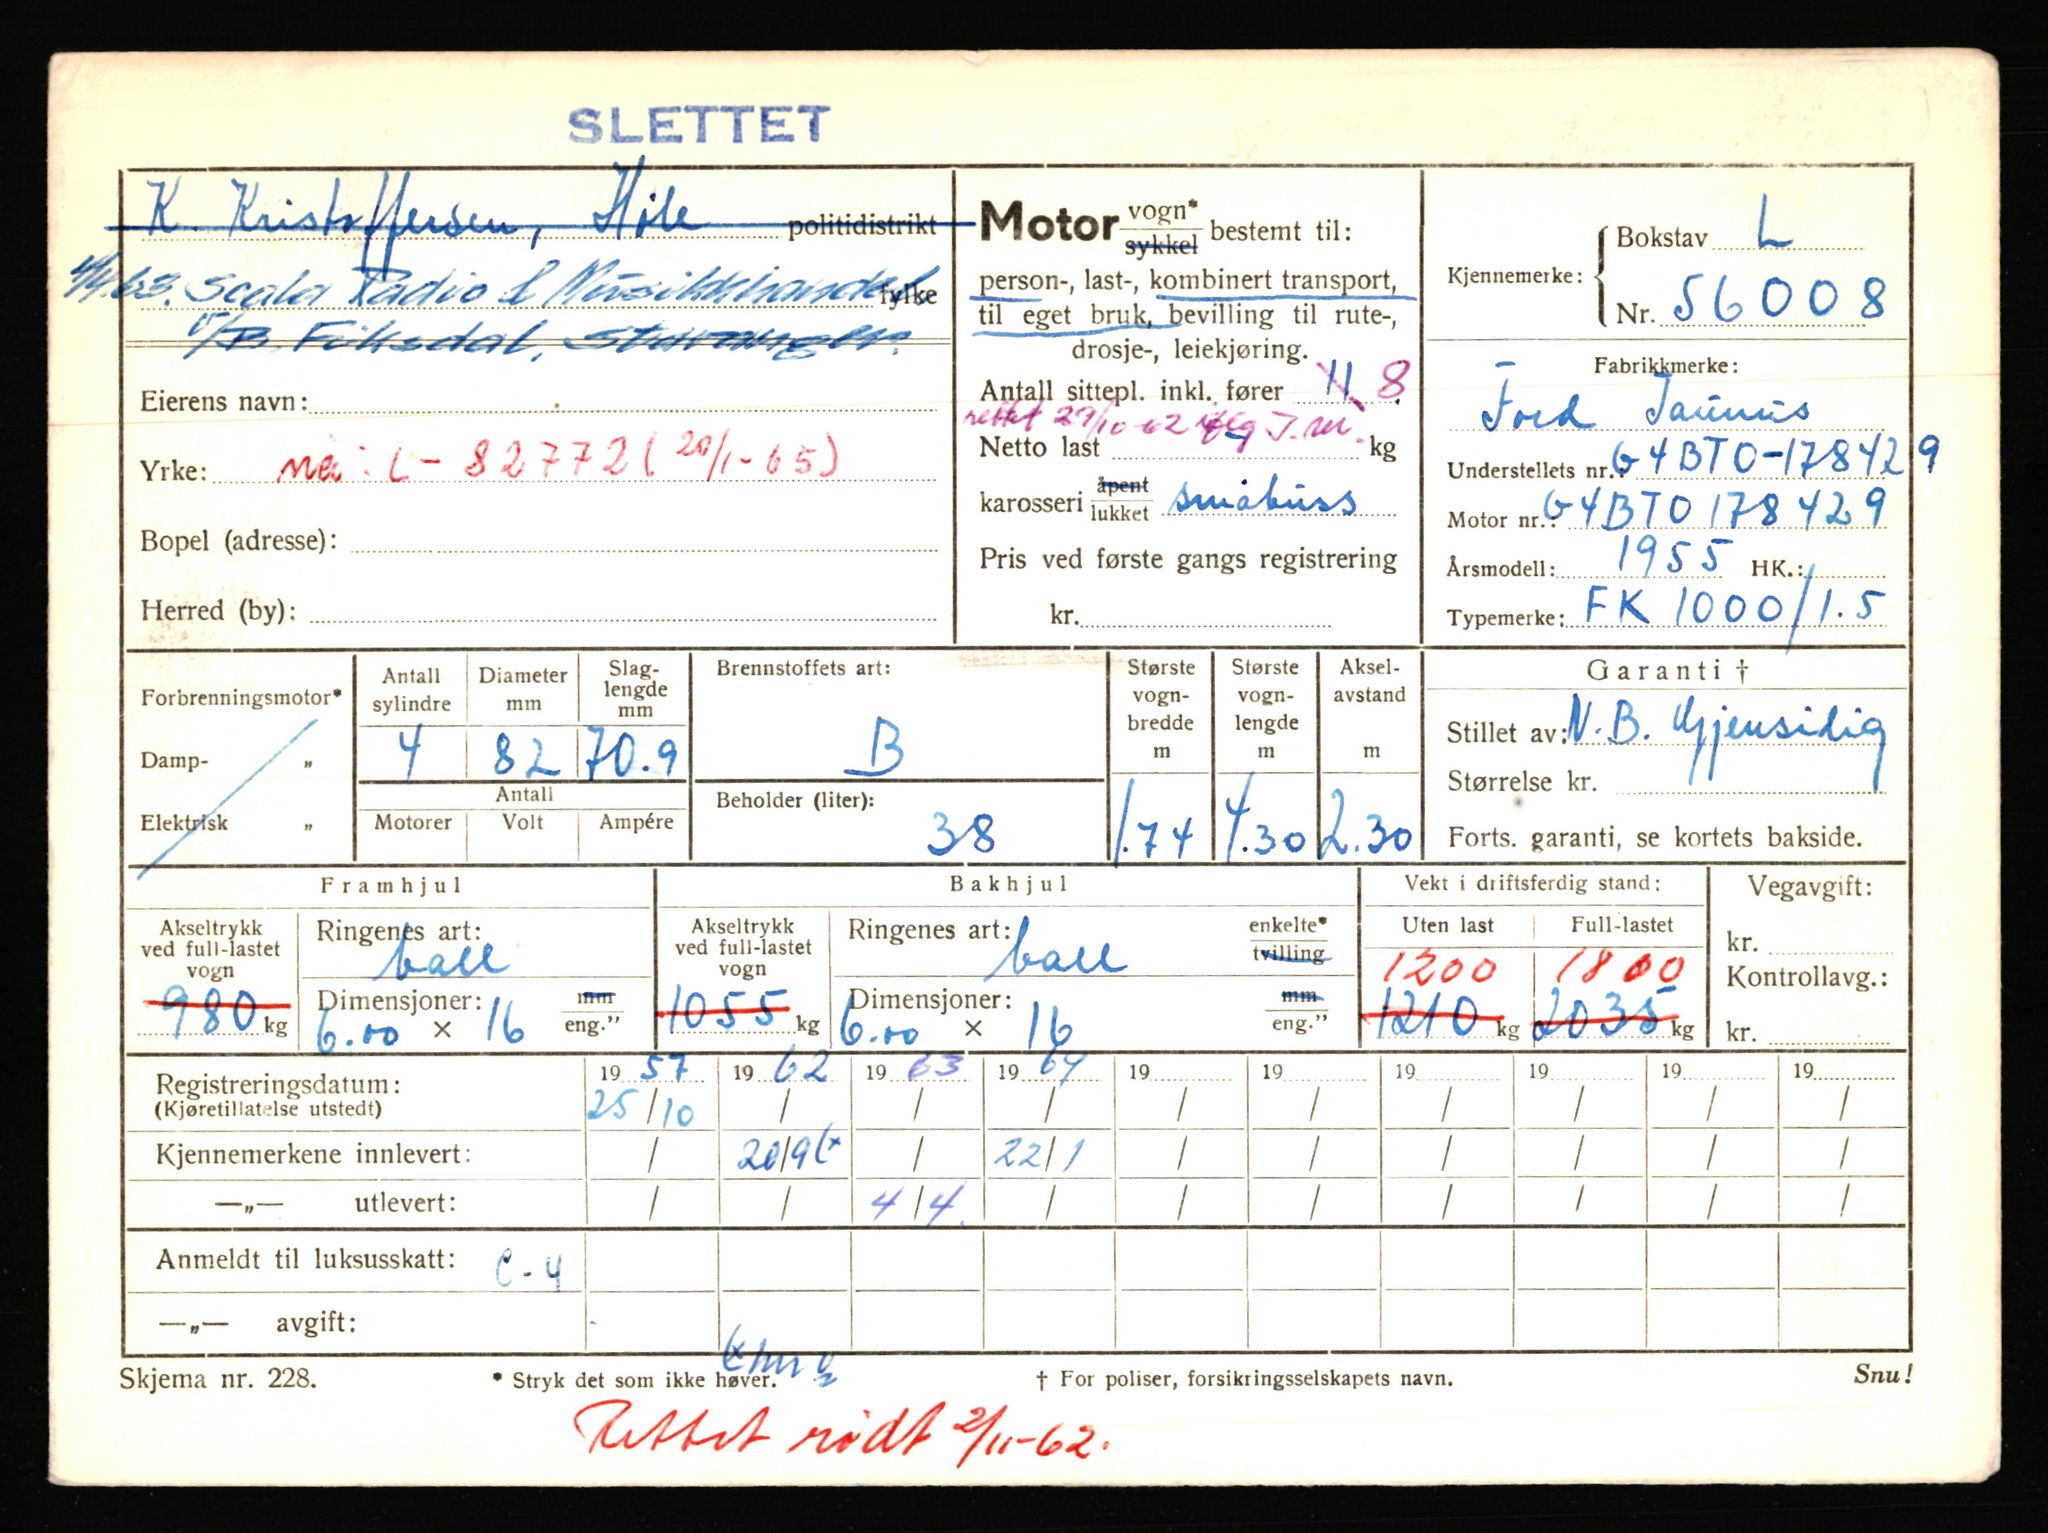 SLETTET
K. Kristoffersen, Høle politidistrikt
4/4.63. Scala Radio & Musikkhandel fylke
v/B. Fiksdal, Stavanger.
Eierens navn:
Yrke: nei: L-82772 (20/1-65)
Bopel (adresse):
Herred (by):
Motor vogn* sykkel bestemt til:
person-, last-, kombinert transport,
til eget bruk, bevilling til rute-,
drosje-, leiekjøring.
Antall sittepl. inkl. fører 11 8
rettet 29/10-62 iflg
Netto last kg
karosseri åpent lukket småbuss
Pris ved første gangs registrering
kr.
Kjennemerke: Bokstav L
Nr. 56008
Fabrikkmerke:
Ford Taunus
Understellets nr.: G4BTO-178429
Motor nr.: G4BTO178429
Årsmodell: 1955 HK.:
Typemerke: FK 1000/1.5
Forbrenningsmotor*
Damp- „
Elektrisk „
Antall sylindre 4
Diameter mm 82
Slaglengde mm 70.9
Antall
Motorer Volt Ampére
Brennstoffets art:
B
Beholder (liter):
38
Største vognbredde m 1.74
Største vognlengde m 4.30
Akselavstand m 2.30
Garanti †
Stillet av: N.B. Gjensidig
Størrelse kr.
Forts. garanti, se kortets bakside.
Framhjul
Akseltrykk ved full-lastet vogn 980 kg
Ringenes art: ball
Dimensjoner: mm
6.00 × 16 eng."
Bakhjul
Akseltrykk ved full-lastet vogn 1055 kg
Ringenes art: ball enkelte* tvilling
Dimensjoner: mm
6.00 × 16 eng."
Vekt i driftsferdig stand:
Uten last Full-lastet
1200 1800
1210 kg 2035 kg
Vegavgift:
kr.
Kontrollavg.:
kr.
Registreringsdatum: 19 57 19 62 19 63 19 64 19 19 19 19 19 19
(Kjøretillatelse utstedt) 25/10 / / / / / / / / /
Kjennemerkene innlevert: / 20/9 (x / 22/1 / / / / / /
—„— utlevert: / / 4/4. / / / / / / /
Anmeldt til luksusskatt: C-4
—„— avgift:
Skjema nr. 228. * Stryk det som ikke høver. † For poliser, forsikringsselskapets navn. Snu!
Rettet rødt 2/11-62.